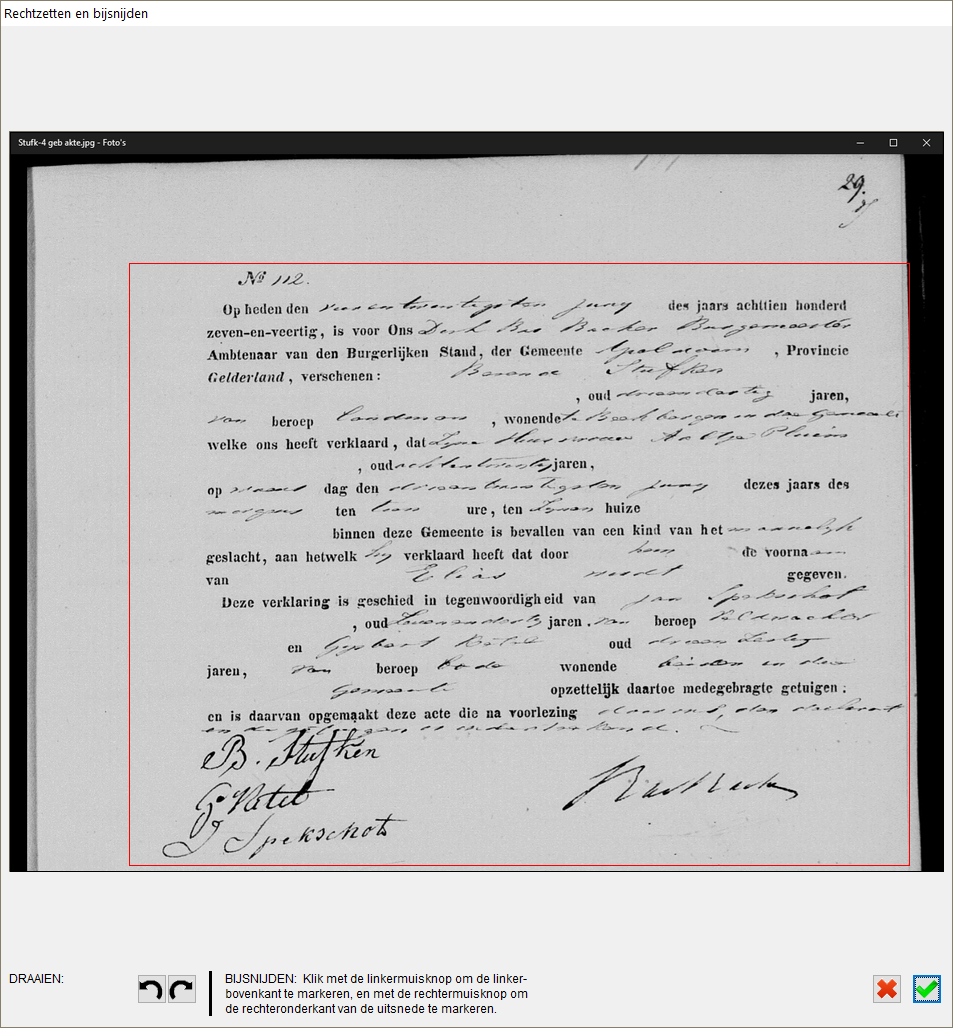 Rechtzetten en bijsnijden
Stufk-4 geb akte.jpg - Foto's
29.
No 112.
Op heden den vierentwintigsten Juny des jaars achttien honderd
zeven-en-veertig, is voor Ons Derk Bas Backer Burgemeester
Ambtenaar van den Burgerlijken Stand, der Gemeente Apeldoorn , Provincie
Gelderland, verschenen: Berend Stufken
, oud drieendertig jaren,
van beroep landman , wonende te Beekbergen in deze Gemeente
welke ons heeft verklaard, dat Zyne Huisvrouw Aaltje Pluim
, oud achtentwintig jaren,
op dag den drieentwintigsten Juny dezes jaars des
morgens ten tien ure, ten Zynen huize
binnen deze Gemeente is bevallen van een kind van het mannelyk
geslacht, aan hetwelk hy verklaard heeft dat door hem de voornaam
van Elias wordt gegeven.
Deze verklaring is geschied in tegenwoordigheid van Jan Spekschot
, oud Zevenendertig jaren, van beroep Veldwachter
en Gysbert oud drieen jaren, van beroep bode wonende beiden in deze
Gemeente opzettelijk daartoe medegebragte getuigen;
en is daarvan opgemaakt deze acte die na voorlezing door ons, den declarant
en de getuigen is onderteekend.
B. Stufken
G
J Spekschot
Bas Backer
DRAAIEN:
BIJSNIJDEN: Klik met de linkermuisknop om de linker-
bovenkant te markeren, en met de rechtermuisknop om
de rechteronderkant van de uitsnede te markeren.